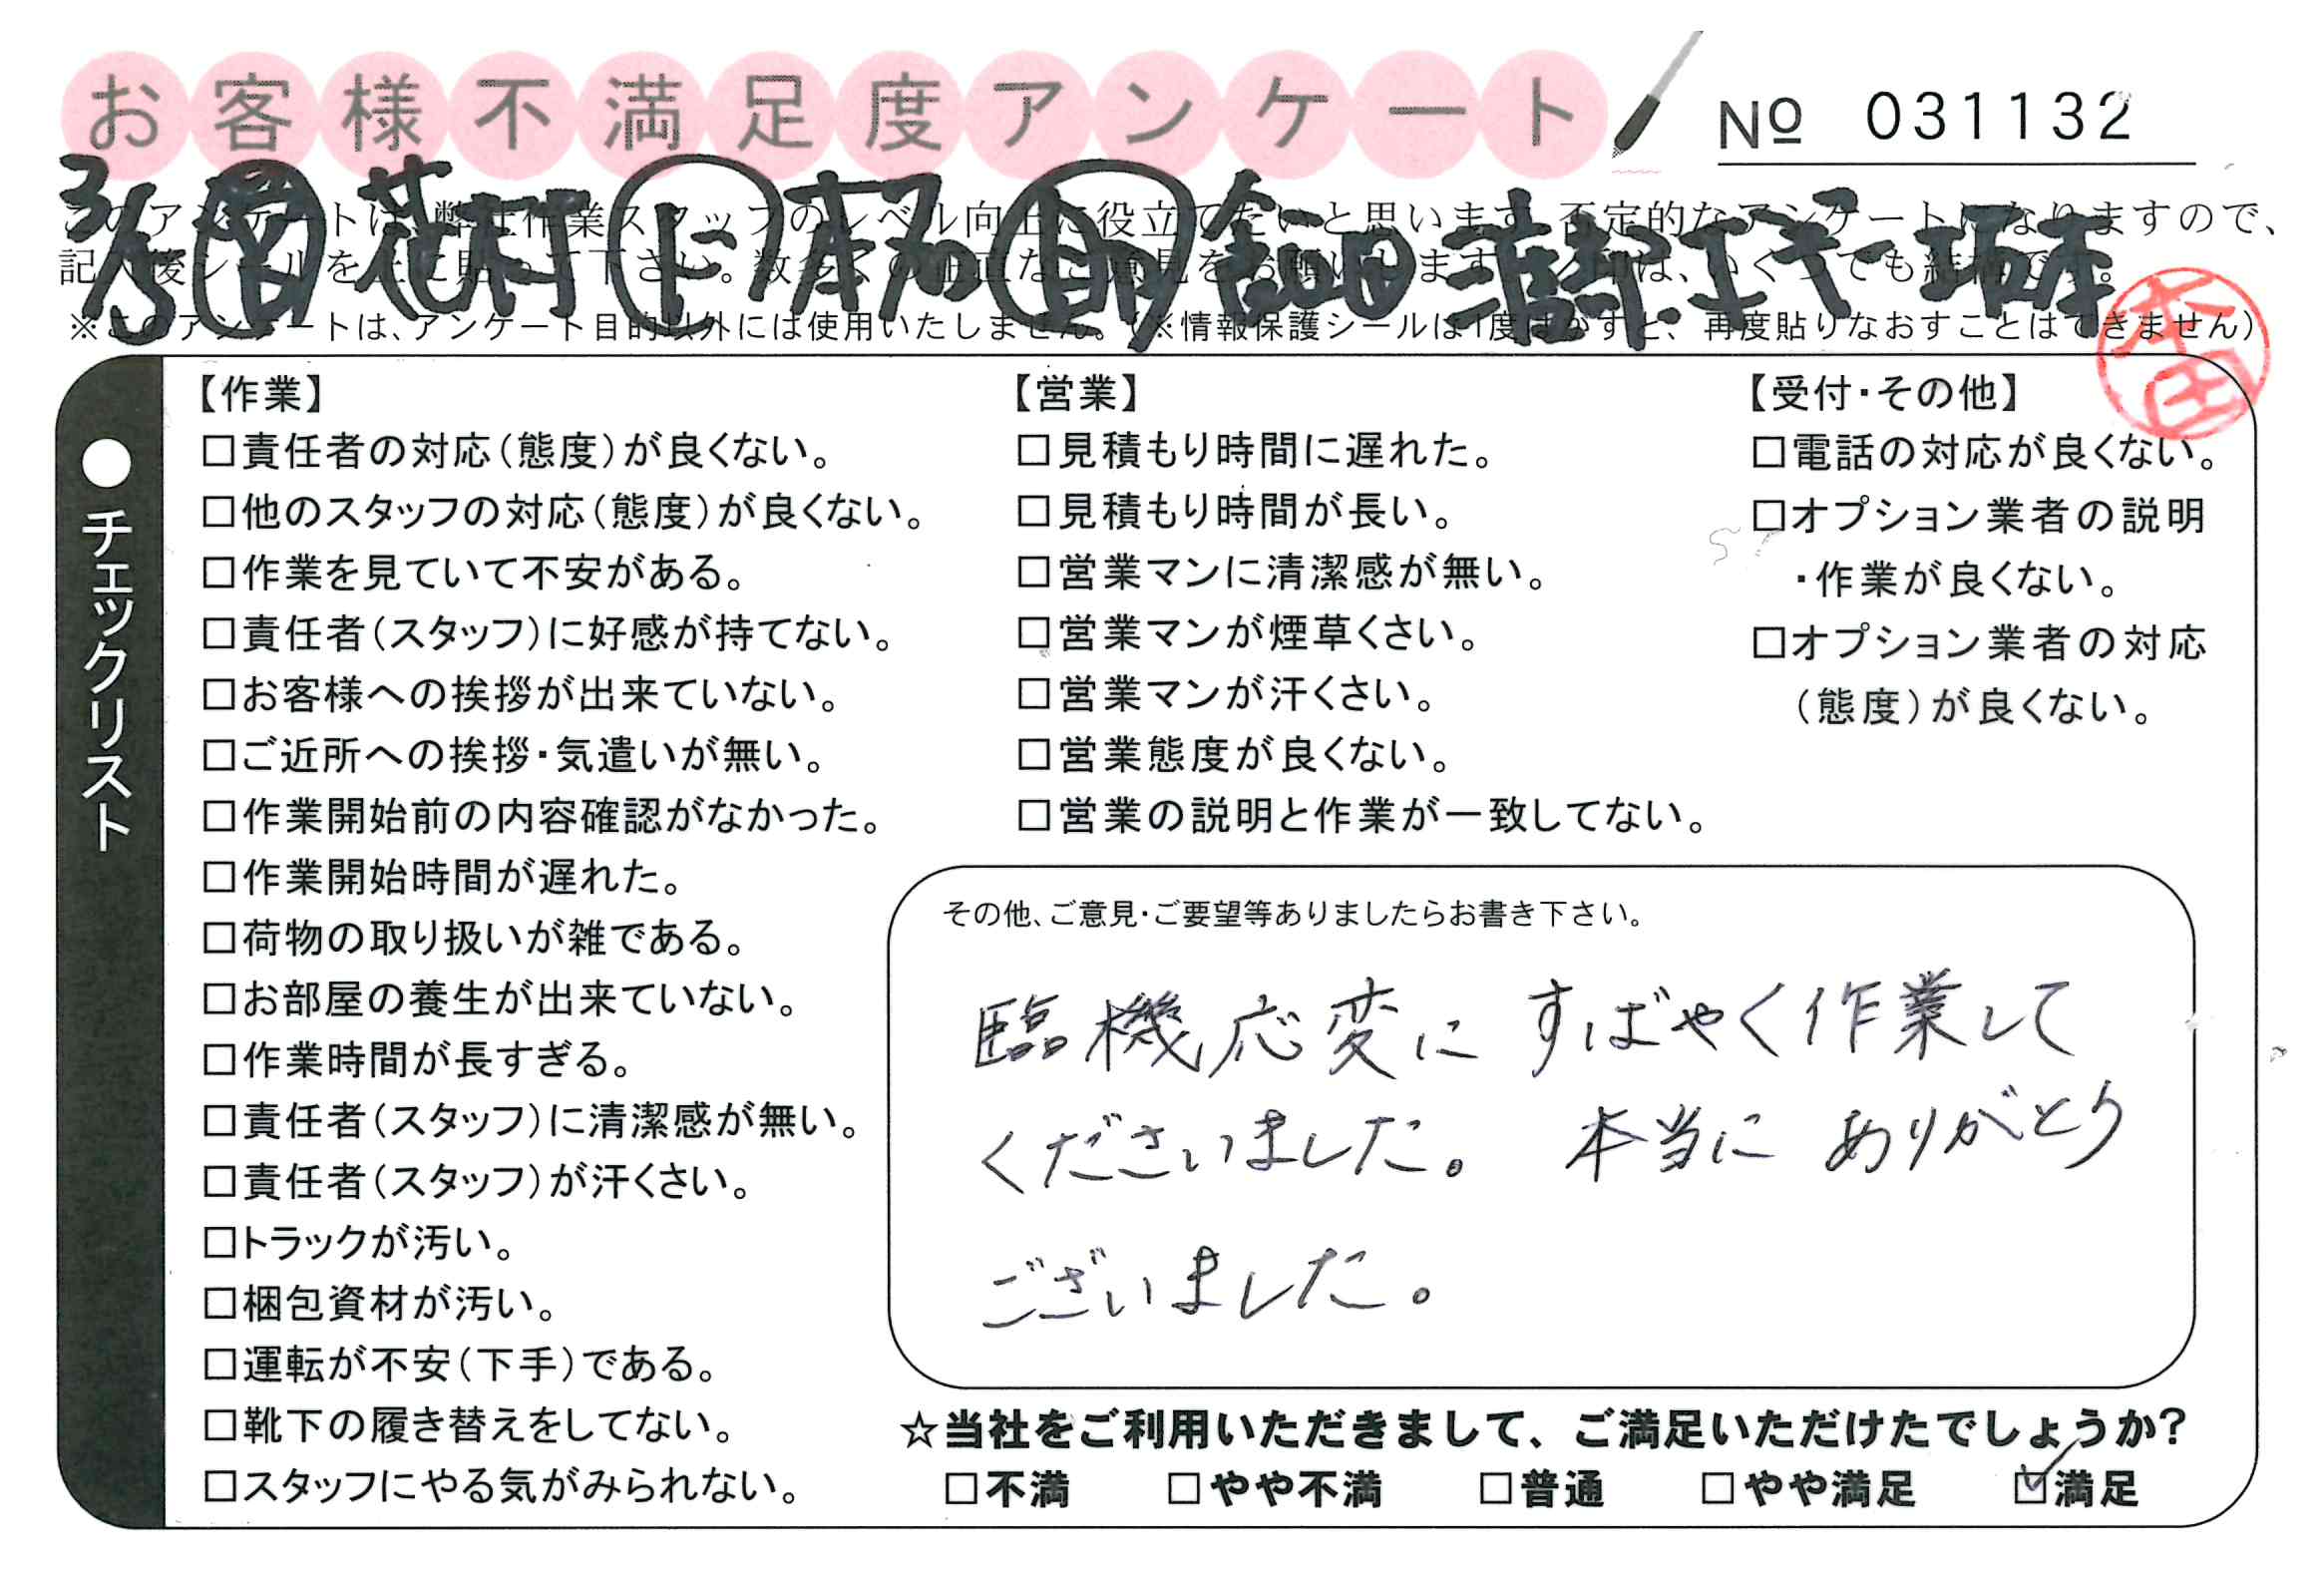 お客様不満足度アンケート
№ 031132
3/15 営 花村 ト 助 金田
このアンケートは、弊社作業スタッフのレベル向上に役立てたいと思います。否定的なアンケートになりますので、
記入後シールを上に貼って下さい。数多くの正直なご意見をお願いします。
※このアンケートは、アンケート目的以外には使用いたしません。(※情報保護シールは1度はがすと、再度貼りなおすことはできません)
本田
●チェックリスト
【作業】
□責任者の対応(態度)が良くない。
□他のスタッフの対応(態度)が良くない。
□作業を見ていて不安がある。
□責任者(スタッフ)に好感が持てない。
□お客様への挨拶が出来ていない。
□ご近所への挨拶・気遣いが無い。
□作業開始前の内容確認がなかった。
□作業開始時間が遅れた。
□荷物の取り扱いが雑である。
□お部屋の養生が出来ていない。
□作業時間が長すぎる。
□責任者(スタッフ)に清潔感が無い。
□責任者(スタッフ)が汗くさい。
□トラックが汚い。
□梱包資材が汚い。
□運転が不安(下手)である。
□靴下の履き替えをしてない。
□スタッフにやる気がみられない。
【営業】
□見積もり時間に遅れた。
□見積もり時間が長い。
□営業マンに清潔感が無い。
□営業マンが煙草くさい。
□営業マンが汗くさい。
□営業態度が良くない。
□営業の説明と作業が一致してない。
【受付・その他】
□電話の対応が良くない。
□オプション業者の説明
・作業が良くない。
□オプション業者の対応
(態度)が良くない。
その他、ご意見・ご要望等ありましたらお書き下さい。
臨機応変に すばやく作業して
くださいました。 本当に ありがとう
ございました。
☆当社をご利用いただきまして、ご満足いただけたでしょうか?
□不満 □やや不満 □普通 □やや満足 ☑満足